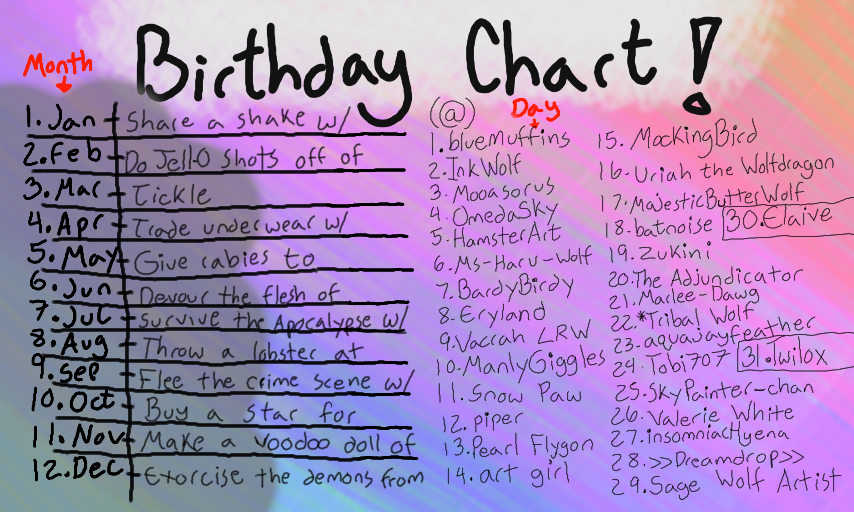 Birthday Chart!
Month
1. Jan - Share a shake w/
2. Feb - Do Jell-O shots off of
3. Mar - Tickle
4. Apr - Trade underwear w/
5. May - Give rabies to
6. Jun - Devour the flesh of
7. Jul - Survive the Apocalypse w/
8. Aug - Throw a lobster at
9. Sep - Flee the crime scene w/
10. Oct - Buy a star for
11. Nov - Make a voodoo doll of
12. Dec - Exorcise the demons from
(@)
Day
1. bluemuffins
2. InkWolf
3. Mooasorus
4. OmedaSky
5. HamsterArt
6. Ms-Haru-Wolf
7. BardyBirdy
8. Eryland
9. Vacrah LRW
10. ManlyGiggles
11. Snow Paw
12. piper
13. Pearl Flygon
14. art girl
15. MockingBird
16. Uriah the Wolfdragon
17. MajesticButterWolf
18. batnoise
19. Zukini
20. The Adjundicator
21. Marlee-Dawg
22. *Tribal Wolf
23. aquawayfeather
24. Tobi707
25. SkyPainter-chan
26. Valerie White
27. insomniacHyena
28. >>Dreamdrop>>
29. Sage Wolf Artist
30. Elaive
31. Twilox